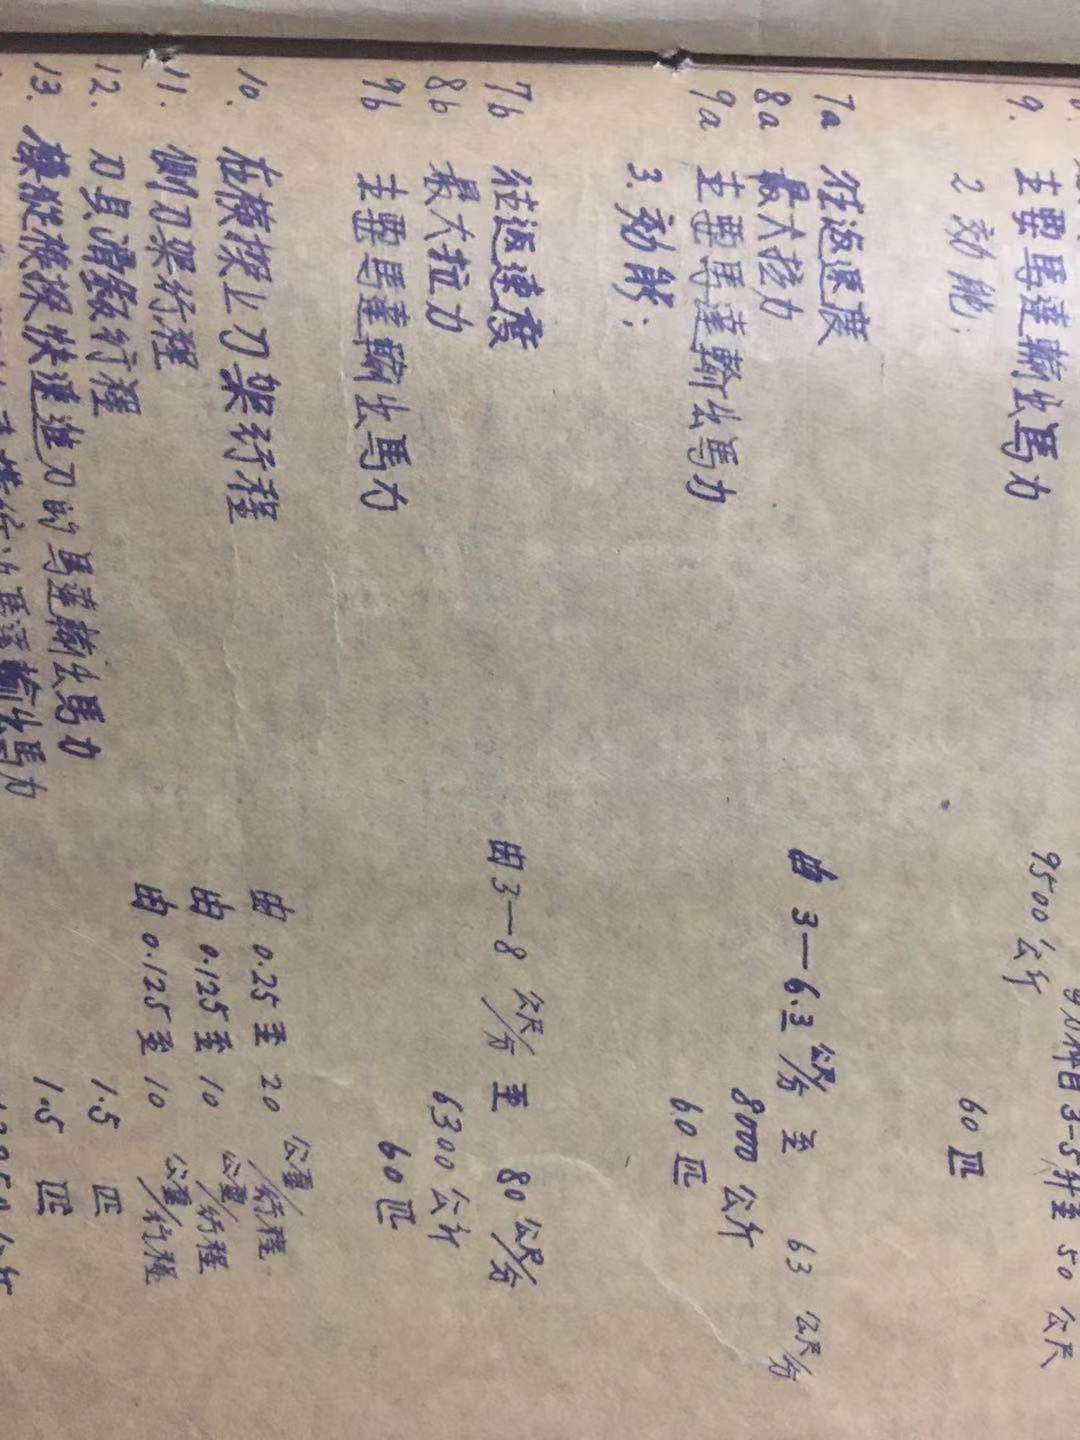 9. 主要馬達輸出馬力 9500公斤
2 効能： 60匹
7a 往返速度 由 3—6.3 公尺/分 至 63 公尺/分
8a 最大拉力 8000 公斤
9a 主要馬達輸出馬力 60匹
3. 効能：
7b 往返速度 由3—8 公尺/分 至 80公尺/分
8b 最大拉力 6300公斤
9b 主要馬達輸出馬力 60匹
10. 在横樑上刀架行程 由 0.25至 20 公厘/行程
11. 側刀架行程 由 0.125至 10 公厘/行程
12. 刀具滑鞍行程 由 0.125至 10 公厘/行程
13. 快速進刀的馬達輸出馬力 1.5 匹
輸出馬力 1.5 匹